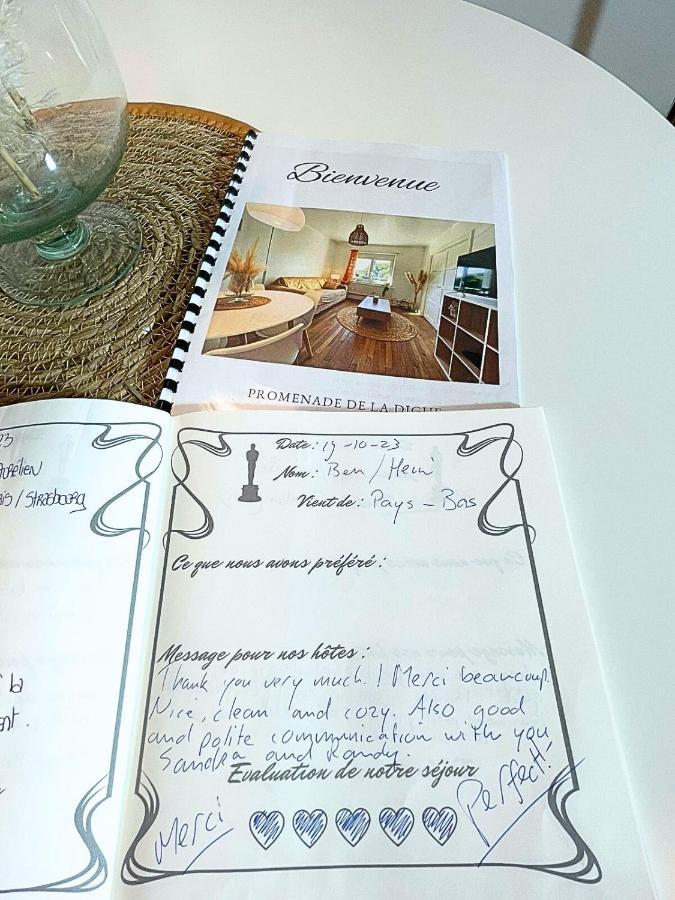 Bienvenue
PROMENADE DE LA DIGUE
23
AURÉLIEN
/ STRASBOURG
la
Date : 19-10-23
Nom : Ben /
Vient de : Pays - Bas
Ce que nous avons préféré :
Message pour nos hôtes :
Thank you very much! Merci beaucoup.
Nice, clean and cozy. Also good
and polite communication with you
Sandra and Randy.
Evaluation de notre séjour
Merci
Perfect!